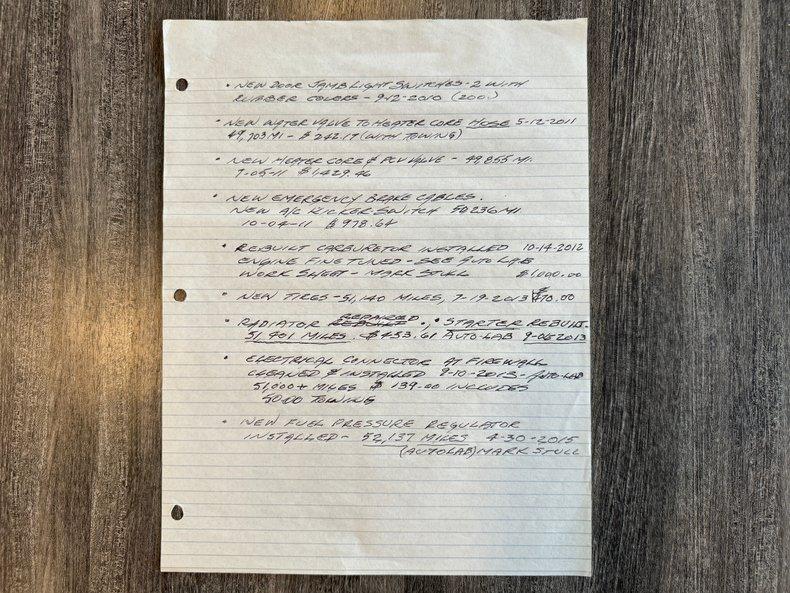 • NEW DOOR JAMB LIGHT SWITCHES - 2 WITH
RUBBER COVERS - 9-12-2010 (200.)
• NEW WATER VALVE TO HEATER CORE HOSE 5-12-2011
49,703 MI - $242.17 (WITH TOWING)
• NEW HEATER CORE & PCV VALVE - 49,855 MI.
7-05-11 $1,429.46
• NEW EMERGENCY BRAKE CABLES.
NEW A/C KICKER SWITCH 50236 MI
10-04-11 $978.64
• REBUILT CARBURETOR INSTALLED 10-14-2012
ENGINE FINE TUNED - SEE AUTO LAB
WORK SHEET - MARK STULL $1,000.00
• NEW TIRES - 51,140 MILES, 7-19-2013 $ 70.00
REPAIRED
• RADIATOR REBUILT ., • STARTER REBUILT.
51,401 MILES. $453.61 AUTO-LAB 9-06 2013
• ELECTRICAL CONNECTOR AT FIREWALL
CLEANED & INSTALLED 9-10-2013 - AUTO-LAB
51,000+ MILES $ 139.00 INCLUDES
50.00 TOWING
• NEW FUEL PRESSURE REGULATOR
INSTALLED - 52,137 MILES 4-30-2015
(AUTOLAB) MARK STULL